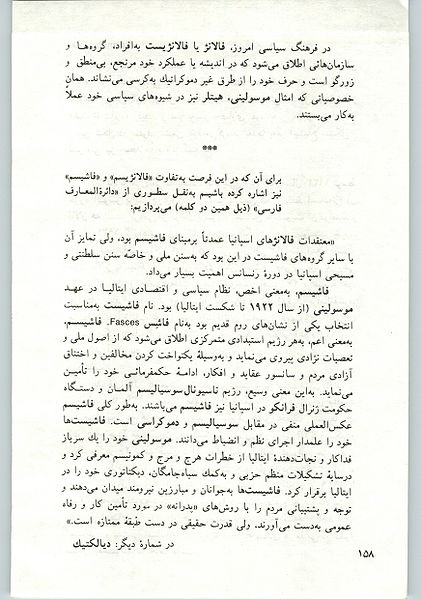 در فرهنگ سیاسی امروز، فالانژ یا فالانژیست به‌افراد، گروه‌ها و
سازمان‌هائی اطلاق می‌شود که در اندیشه یا عملکرد خود مرتجع، بی‌منطق و
زورگو است و حرف خود را از طرق غیر دموکراتیك به‌کرسی می‌نشاند. همان
خصوصیاتی که امثال موسولینی، هیتلر نیز در شیوه‌های سیاسی خود عملاً
به‌کار می‌بستند.
***
برای آن که در این فرصت به‌تفاوت «فالانژیسم» و «فاشیسم»
نیز اشاره کرده باشیم به‌نقل سطوری از «دائرةالمعارف
فارسی» (ذیل همین دو کلمه) می‌پردازیم:
«معتقدات فالانژهای اسپانیا عمدتاً برمبنای فاشیسم بود، ولی تمایز آن
با سایر گروه‌های فاشیست در این بود که به‌سنن ملی و خاصّه سنن سلطنتی و
مسیحی اسپانیا در دورهٔ رنسانس اهمیت بسیار می‌داد.
فاشیسم، به‌معنی اخص، نظام سیاسی و اقتصادی ایتالیا در عهد
موسولینی (از سال ۱۹۲۲ تا شکست ایتالیا) بود. نام فاشیست به‌مناسبت
انتخاب یکی از نشان‌های روم قدیم بود به‌نام فاشِس Fasces. فاشیسم،
به‌معنی اعم، به‌هر رژیم استبدادی متمرکزی اطلاق می‌شود که از اصول ملی و
تعصبات نژادی پیروی می‌نماید و به‌وسیلهٔ یکنواخت کردن مخالفین و اختناق
آزادی مردم و سانسور عقاید و افکار، ادامهٔ حکمفرمائی خود را تأمین
می‌نماید. به‌این معنی وسیع، رژیم ناسیونال‌سوسیالیسم آلمان و دستگاه
حکومت ژنرال فرانکو در اسپانیا نیز فاشیسم می‌باشند. به‌طور کلی فاشیسم
عکس‌العملی منفی در مقابل سوسیالیسم و دموکراسی است. فاشیست‌ها
خود را علمدار اجرای نظم و انضباط می‌دانند. موسولینی خود را یك سرباز
فداکار و نجات‌دهندهٔ ایتالیا از خطرات هرج و مرج و کمونیسم معرفی کرد و
درسایهٔ تشکیلات منظم حزبی و به‌کمك سیاه‌جامگان، دیکتاتوری خود را در
ایتالیا برقرار کرد. فاشیست‌ها به‌جوانان و مبارزین نیرومند میدان می‌دهند و
توجه و پشتیبانی مردم را با روش‌های «پدرانه» در مورد تأمین کار و رفاه
عمومی به‌دست می‌آورند. ولی قدرت حقیقی در دست طبقهٔ ممتازه است.»
در شمارهٔ دیگر: دیالکتیك
۱۵۸